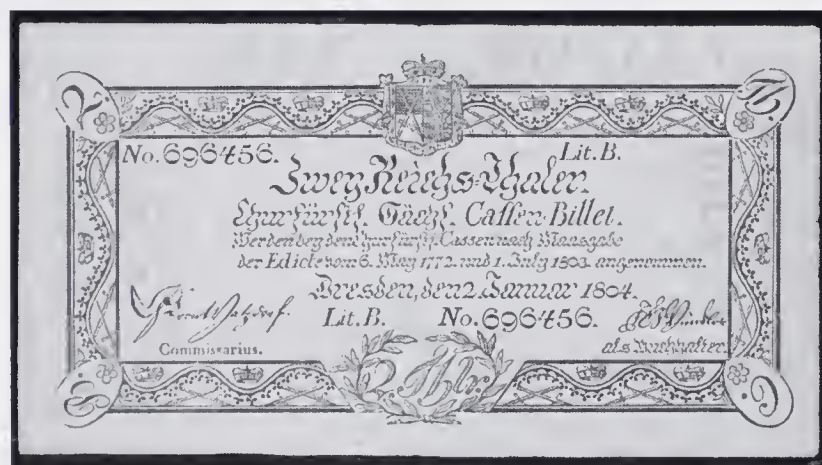 No. 696456. Lit. B.
Zwey Reichs-Thaler.
Churfürstl. Sächs. Cassen-Billet.
Werden bey den Churfürstl. Cassen nach Maasgabe
der Edicte vom 6. May 1772. und 1. July 1803. angenommen.
Dresden, den 2. Januar 1804.
Lit. B. No. 696456.
Commissarius.
als Buchhalter
2. Thlr.